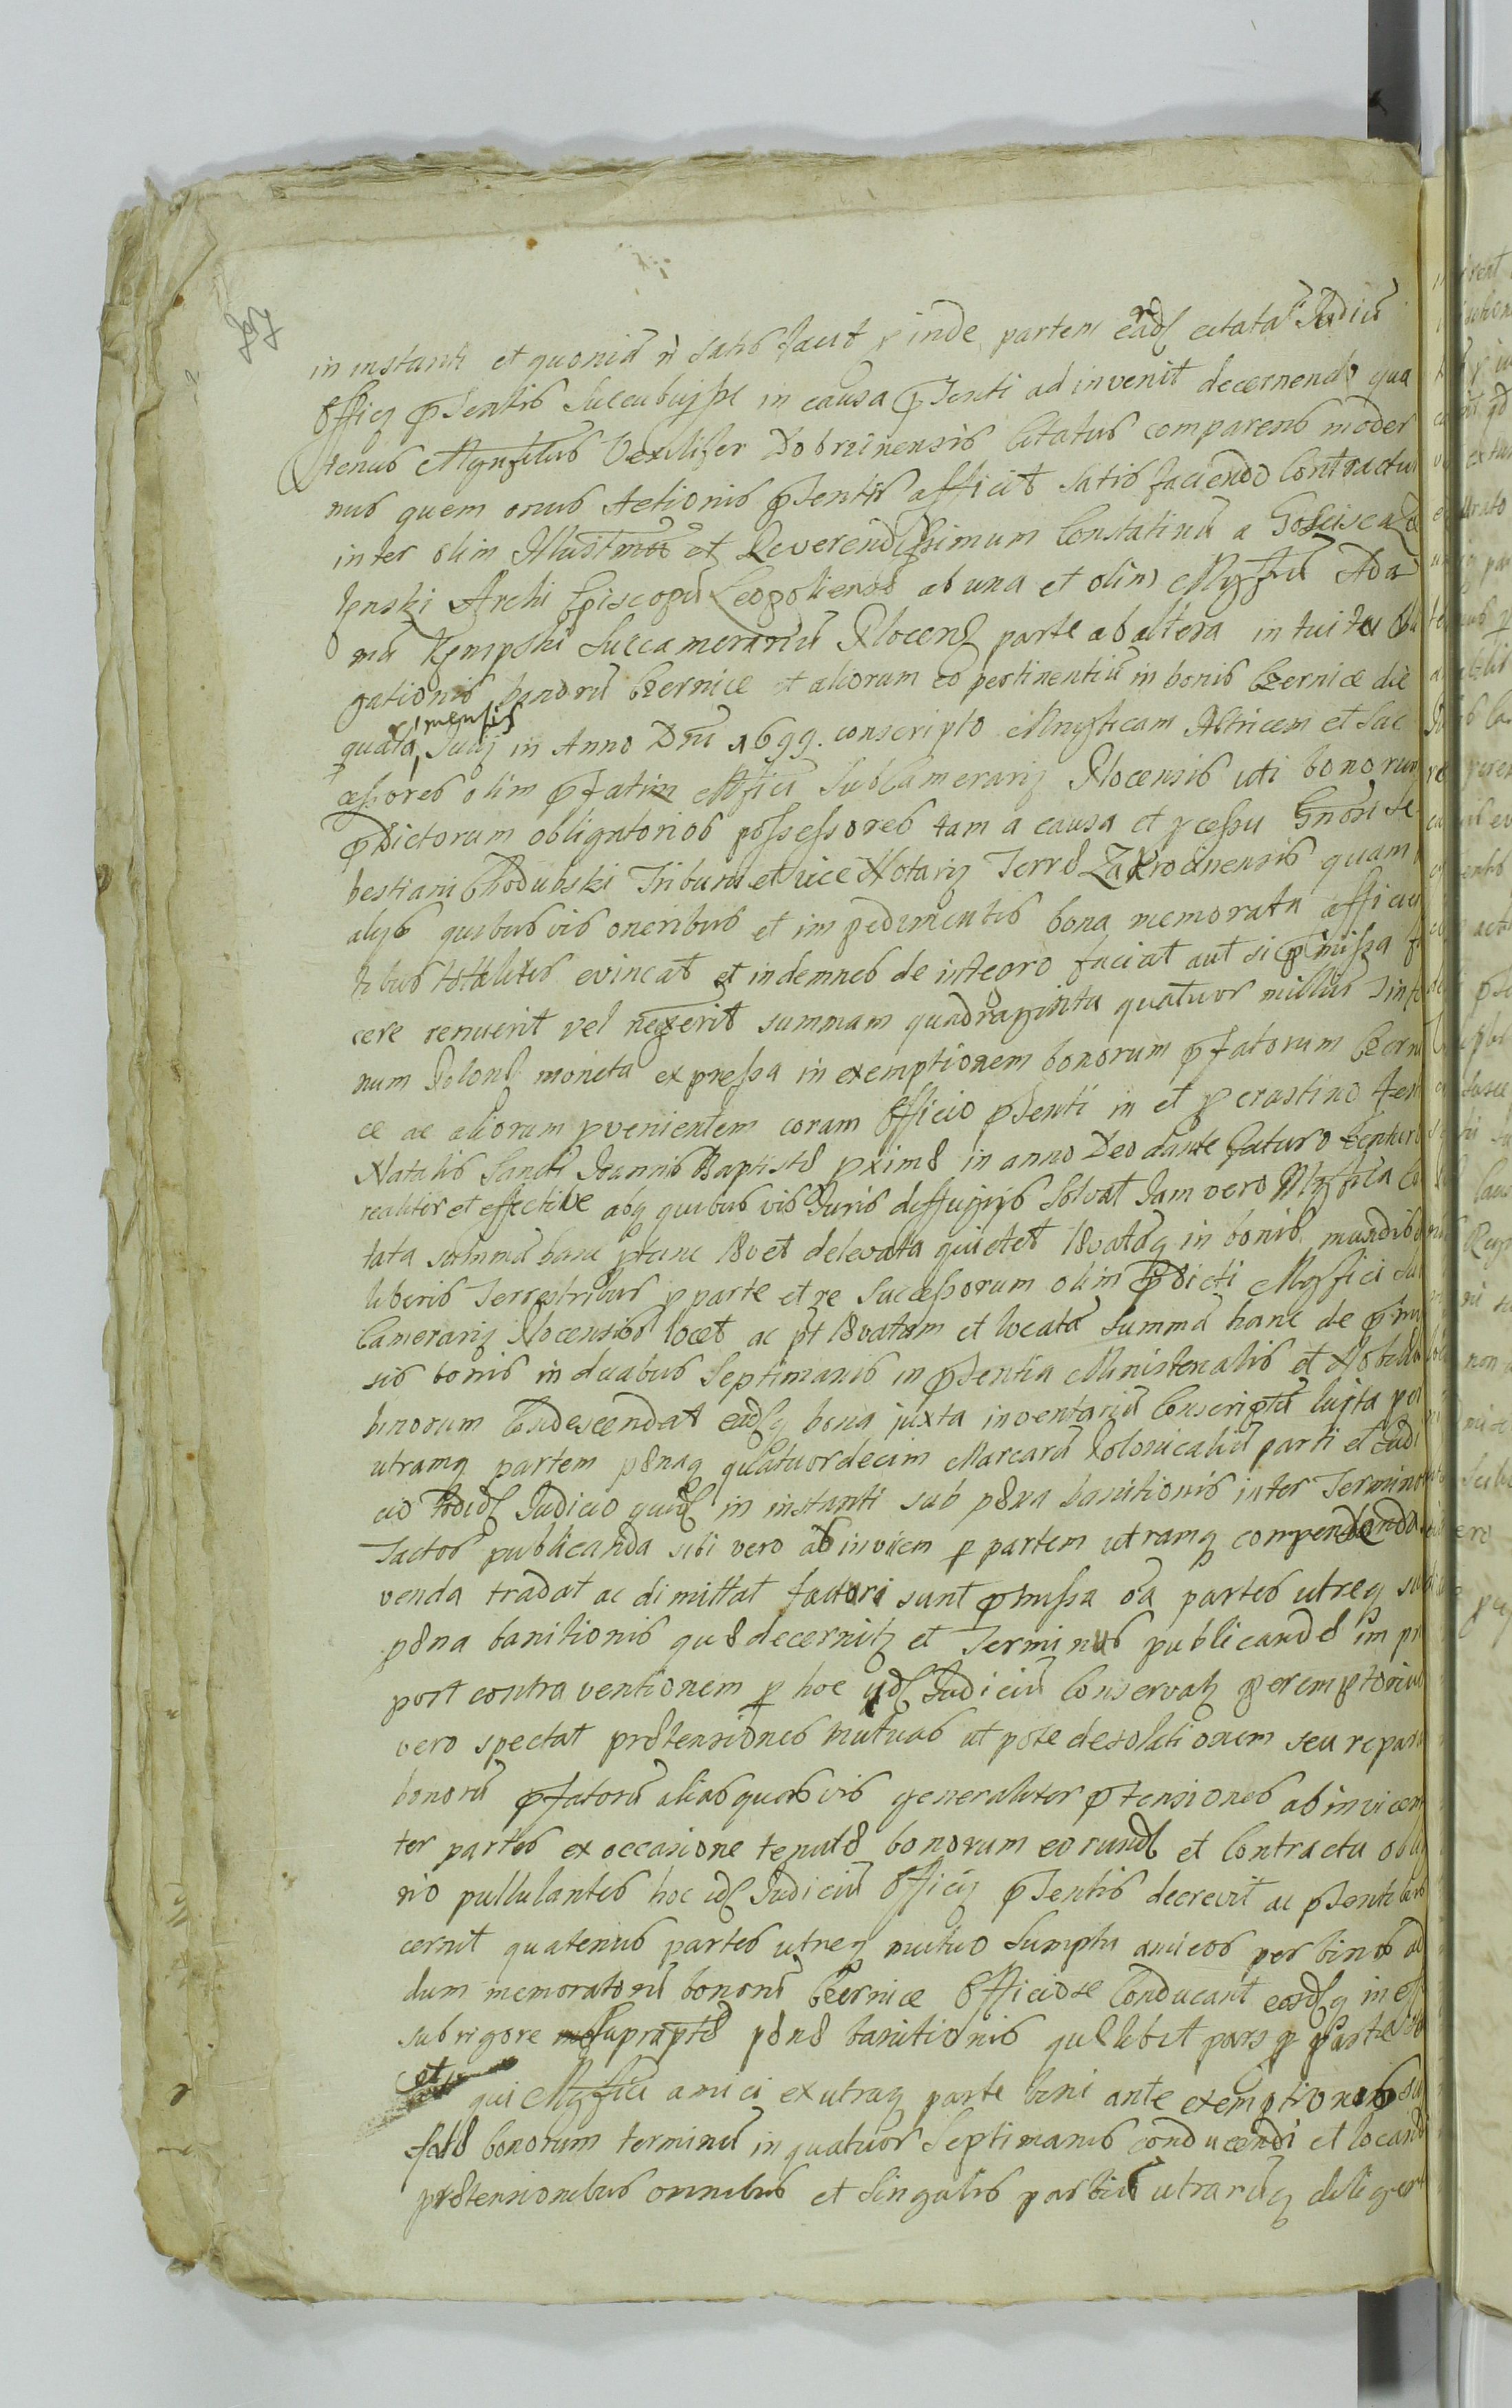 in instanti et quoniã ñ satis facit p̱inde partem eãdl citatã Judiciũ
Officij p̃sentis Succubuisse in causa p̃senti ad invenit decernendo qua
tenus Mgnificus Vexilifer Dobrzinensis Citatus comparens moder
nus quem onus Actionis p̃sentis afficit satis faciendo Contractui
inter olim Illustrmũ et Reverendissimum Constatinũ a
Archi Episcopũ Leopoliens ab una et olim Mgfcũ Ada
mũ Kempski Succamerariũ Plocens parte ab altera in tuitu Obli
gationis bonorũ Czernice et aliorum eo pertinentiũ in bonis Czernice die
quarta mensis Julij in Anno Dnĩ 1699. conscripto Mngficam Actricem et Suc
cessores olim p̃fati Mgfici SubCamerarij Plocensis uti bonorum
p̃dictorum obligatorios possessores tam a causa et pcessu Gnõsi Se
bestiani Chodubski Tribuni et vice Notarij Terræ Zakrocinensis quam
alijs quibus vis oneribus et impedimentis bona memorata afficien
tibus totaliter evincat et indemnes de integro faciat aut si p̃missa fa
cere renuerit vel neglexerit summam quadraginta quatuor milliũ
num Polonl moneta expressa in exemptionem bonorum p̃fatorum Czerni
ce ac aliorum pvenientem coram Officio p̃senti in et p crastino festi
Natalis Sancti Joannis Baptistæ pximæ in anno Deo dante futuro venturi
realiter et effective absq quibus vis Juris diffugijs Solvat Jam vero Mgfica Ci
tata summã hanc ptunc levet delevata quietet levatãq in bonis mundis
liberis Terrestribus p parte et re Successorum olim p̃dicti Mgfici Sub
Camerarij Plocensis locet ac pt levatam et locatã Summã hanc de p̃mis
sis bonis in duabus Septimanis in p̃sentia Ministerialis et Nobiliũ
binorum Condescendat eadlq bona juxta inventariũ Conscriptũ
utramq partem pænaq quatuordecim Marcarũ Polonicaliũ parti et Judi
cio Judicio quidl in instanti sub pæna banitionis inter Terminos
Tactos publicanda sibi vero ab invicem p partem utramq compendenda
venda tradat ac dimittat facturi sunt p̃missa oa partes utreq sub
pæna banitionis quæ decernitz et Terminus publicandæ
post contra ventionem p hoc idl Judiciũ Conservatz peremptorius
vero spectat prætensiones mutuas ut pote desolationem seu repara
bonorũ p̃fatorũ alias quas vis generaliter p̃tensiones ab invicem
ter partes ex occasione tenutæ bonorum eorundl et Contractu obliga
rio pullulantes hoc idl Judiciũ Officij p̃sentis decrevit ac p̃sentibus
cernit quatenus partes utreq mutuo Sumptu amicos per binos ad
dum memoratorũ bonorũ Czernice Officiose Conducant eosdlq in
sub rigore supraptæ pænæ banitionis quælibet pars p parte
et qui Mgfici amici ex utraq parte bini ante exemptionis
fatæ bonorum terminũ in quatuor Septimanis conducendi et locandi
prætensionibus omnibus et singulis partiũ utrarũq diligent